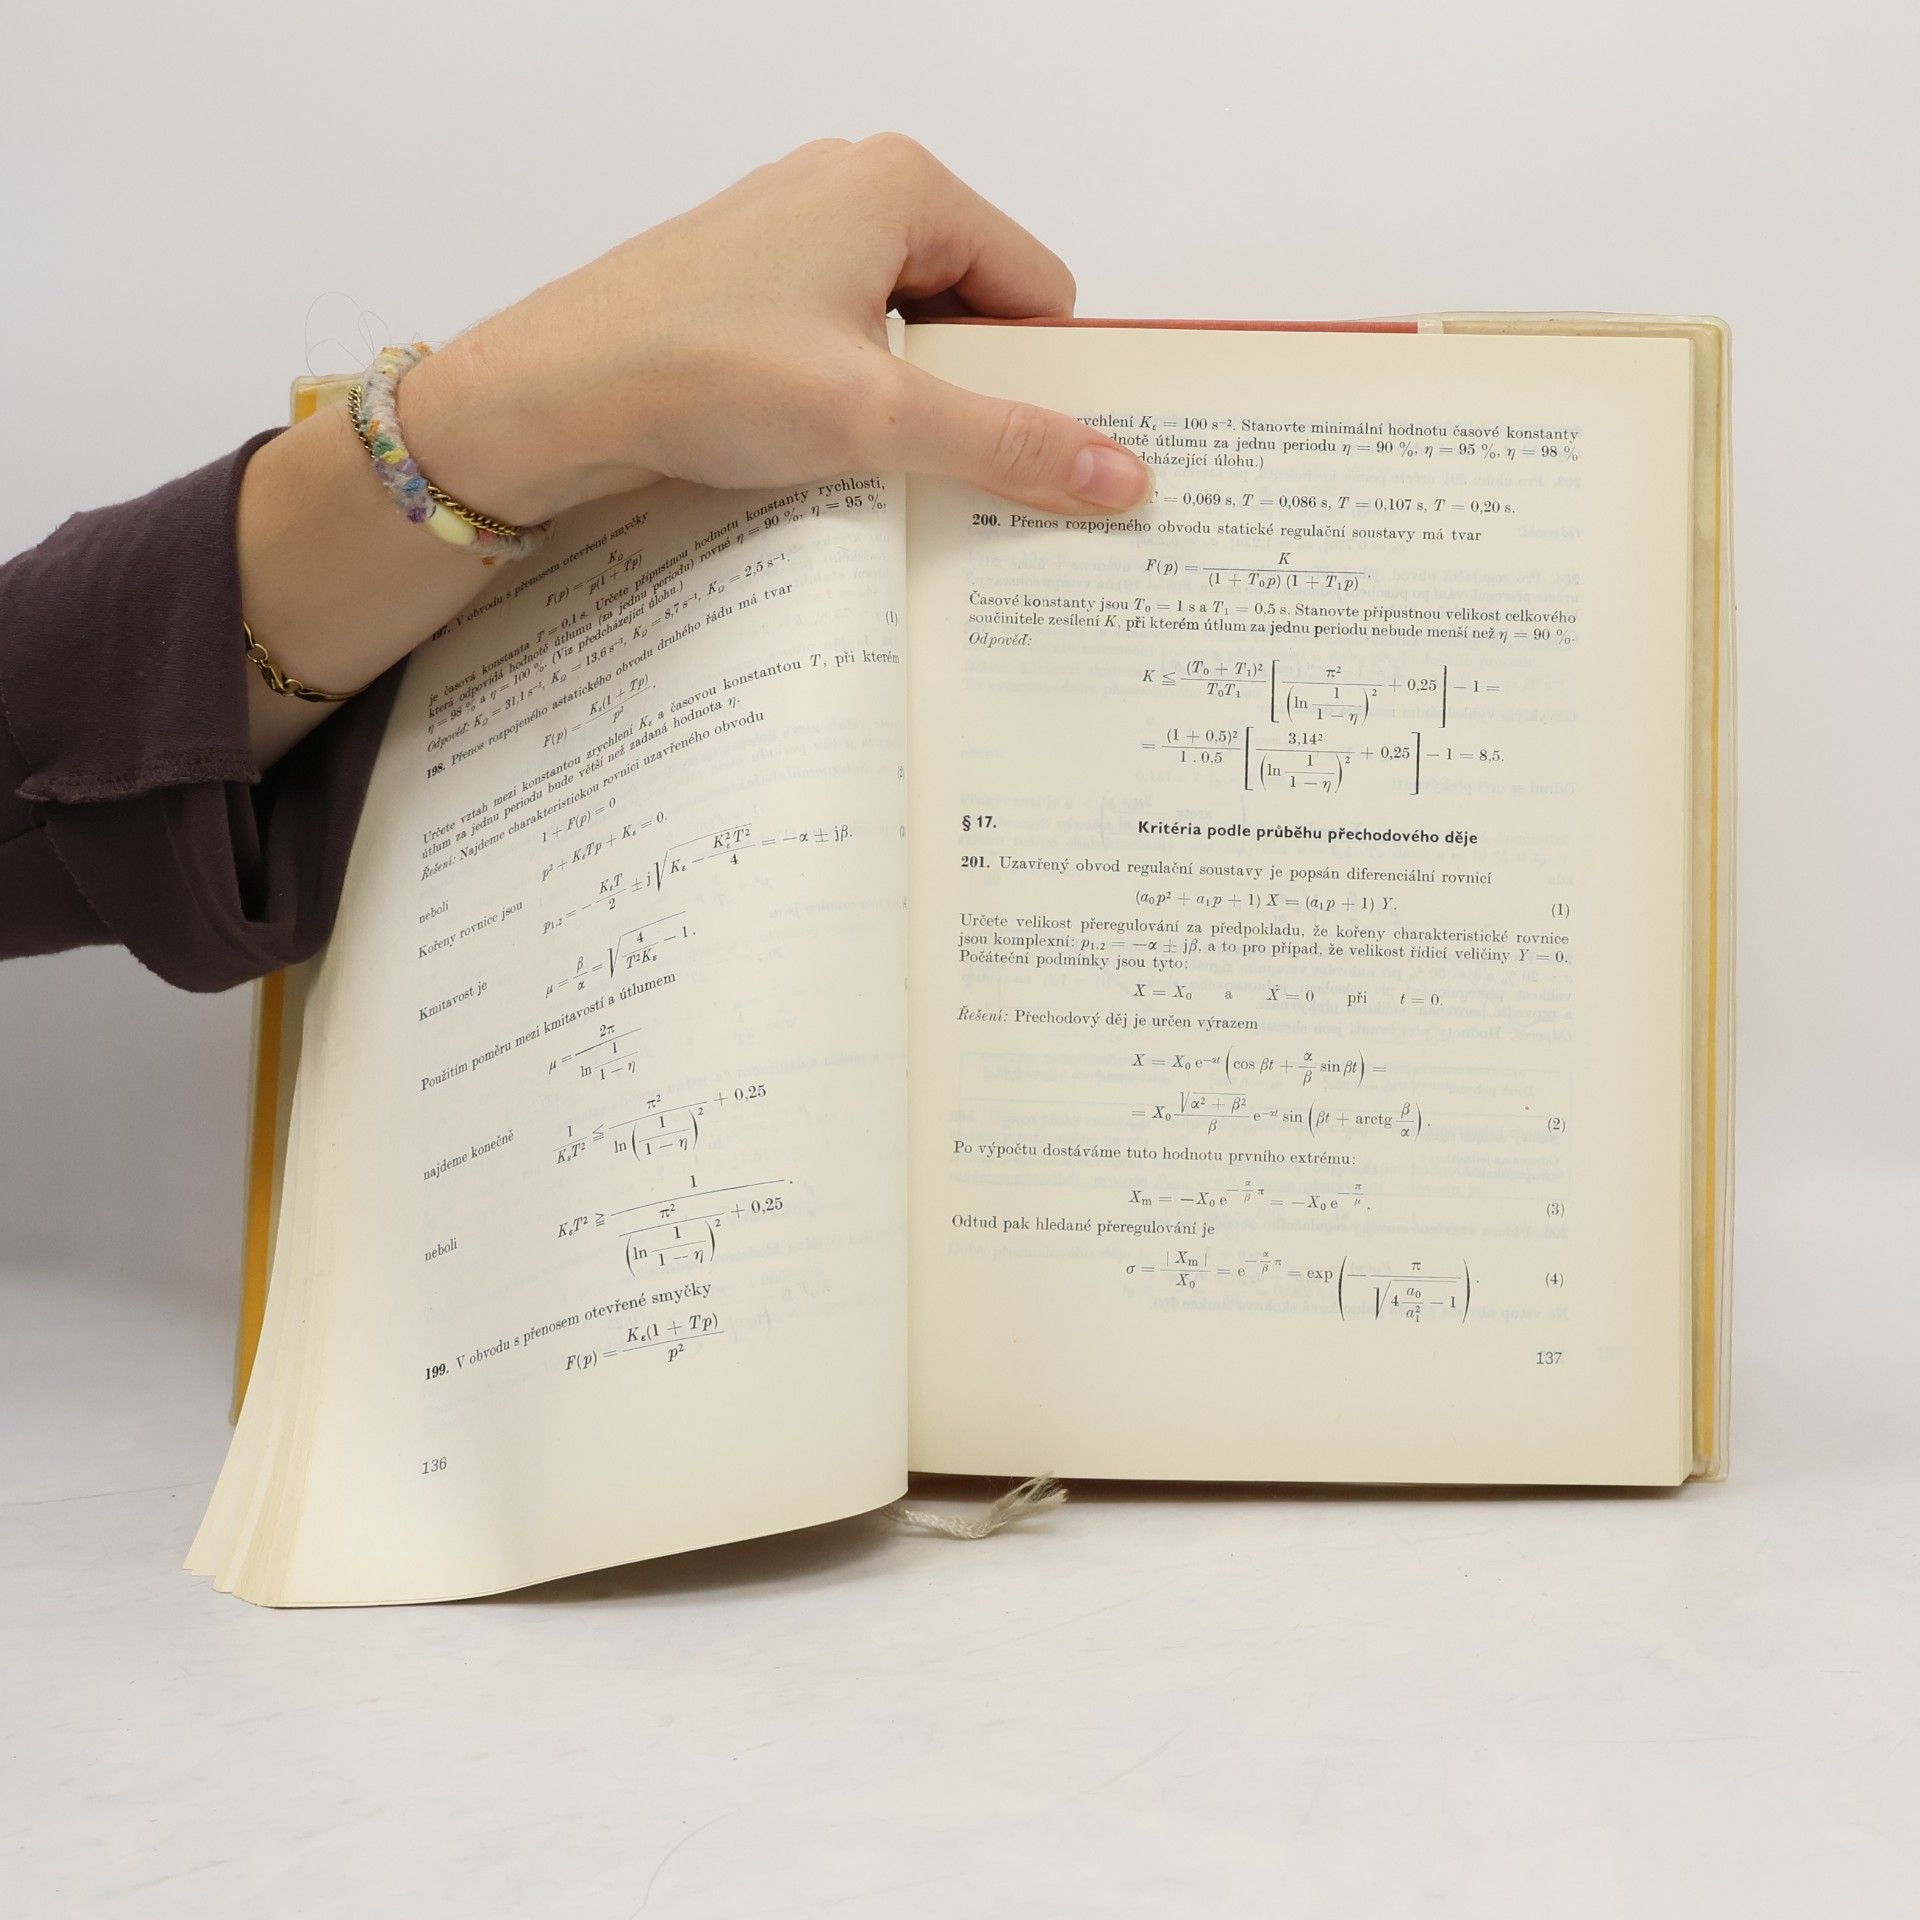 197. V obvodu s přenosem otevřené smyčky
F(p) = K_Ω / p(1 + Tp)
je časová konstanta T = 0,1 s. Určete přípustnou hodnotu konstanty rychlosti,
která odpovídá hodnotě útlumu (za jednu periodu) rovné η = 90 %, η = 95 %,
η = 98 % a η = 100 %. (Viz předcházející úlohu.)
Odpověď: K_Ω = 31,1 s⁻¹, K_Ω = 13,6 s⁻¹, K_Ω = 8,7 s⁻¹, K_Ω = 2,5 s⁻¹.
198. Přenos rozpojeného astatického obvodu druhého řádu má tvar
F(p) = K_ε(1 + Tp) / p². (1)
Určete vztah mezi konstantou zrychlení K_ε a časovou konstantou T, při kterém
útlum za jednu periodu bude větší než zadaná hodnota η.
Řešení: Najdeme charakteristickou rovnici uzavřeného obvodu
1 + F(p) = 0 (2)
neboli
p² + K_εTp + K_ε = 0.
Kořeny rovnice jsou
p₁,₂ = − K_εT/2 ± j √(K_ε − K_ε²T²/4) = −α ± jβ.
Kmitavost je
μ = β/α = √(4/(T²K_ε) − 1).
Použitím poměru mezi kmitavostí a útlumem
μ = 2π / ln (1/(1 − η))
najdeme konečně
1/(K_εT²) ≦ π² / ln (1/(1 − η))² + 0,25
neboli
K_εT² ≧ 1 / (π² / (ln 1/(1 − η))² + 0,25).
199. V obvodu s přenosem otevřené smyčky
F(p) = K_ε(1 + Tp) / p²
136
rychlení K_ε = 100 s⁻². Stanovte minimální hodnotu časové konstanty
útlumu za jednu periodu η = 90 %, η = 95 %, η = 98 %
úlohu.)
T = 0,069 s, T = 0,086 s, T = 0,107 s, T = 0,20 s.
200. Přenos rozpojeného obvodu statické regulační soustavy má tvar
F(p) = K / (1 + T₀p) (1 + T₁p).
Časové konstanty jsou T₀ = 1 s a T₁ = 0,5 s. Stanovte přípustnou velikost celkového
součinitele zesílení K, při kterém útlum za jednu periodu nebude menší než η = 90 %.
Odpověď:
K ≦ (T₀ + T₁)²/T₀T₁ [π² / (ln 1/(1 − η))² + 0,25] − 1 =
= (1 + 0,5)²/1 . 0,5 [3,14² / (ln 1/(1 − η))² + 0,25] − 1 = 8,5.
§ 17. Kritéria podle průběhu přechodového děje
201. Uzavřený obvod regulační soustavy je popsán diferenciální rovnicí
(a₀p² + a₁p + 1) X = (a₁p + 1) Y. (1)
Určete velikost přeregulování za předpokladu, že kořeny charakteristické rovnice
jsou komplexní: p₁,₂ = −α ± jβ, a to pro případ, že velikost řídicí veličiny Y = 0.
Počáteční podmínky jsou tyto:
X = X₀ a Ẋ = 0 při t = 0.
Řešení: Přechodový děj je určen výrazem
X = X₀ e^(−αt) (cos βt + α/β sin βt) =
= X₀ √(α² + β²)/β e^(−αt) sin (βt + arctg β/α). (2)
Po výpočtu dostáváme tuto hodnotu prvního extrému:
X_m = −X₀ e^(−(α/β)π) = −X₀ e^(−π/μ). (3)
Odtud pak hledané přeregulování je
σ = | X_m | / X₀ = e^(−(α/β)π) = exp (− π / √(4 a₀/a₁² − 1)). (4)
137